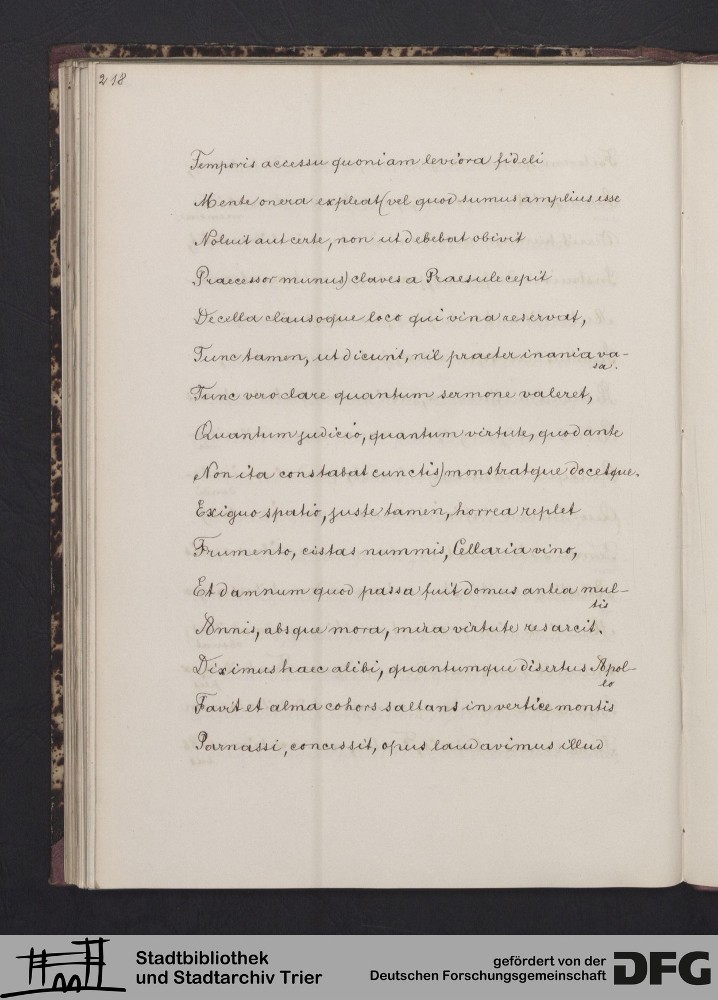 218
Temporis accessu quoniam leviora fideli
Mente onera expleat (vel quod sumus amplius esse
Noluit aut certe, non ut debebat obivit
Praecessor munus) claves a Praesule cepit
De cella clausoque loco qui vina reservat,
Tunc tamen, ut dicunt, nil praeter inania va-
sa.
Tunc vero clare quantum sermone valeret,
Quantum judicio, quantum virtute, quod ante
Non ita constabat cunctis) monstratque docetque.
Exiguo spatio, juste tamen, horrea replet
Frumento, cistas nummis, Cellaria vino,
Et damnum quod passa fuit domus antea mul-
tis
Annis, absque mora, mira virtute resarcit.
Diximus haec alibi, quantumque disertus Apol-
lo
Favit et alma cohors saltans in vertice montis
Parnassi, concessit, opus laudavimus illud
Stadtbibliothek
und Stadtarchiv Trier
gefördert von der
Deutschen Forschungsgemeinschaft
DFG